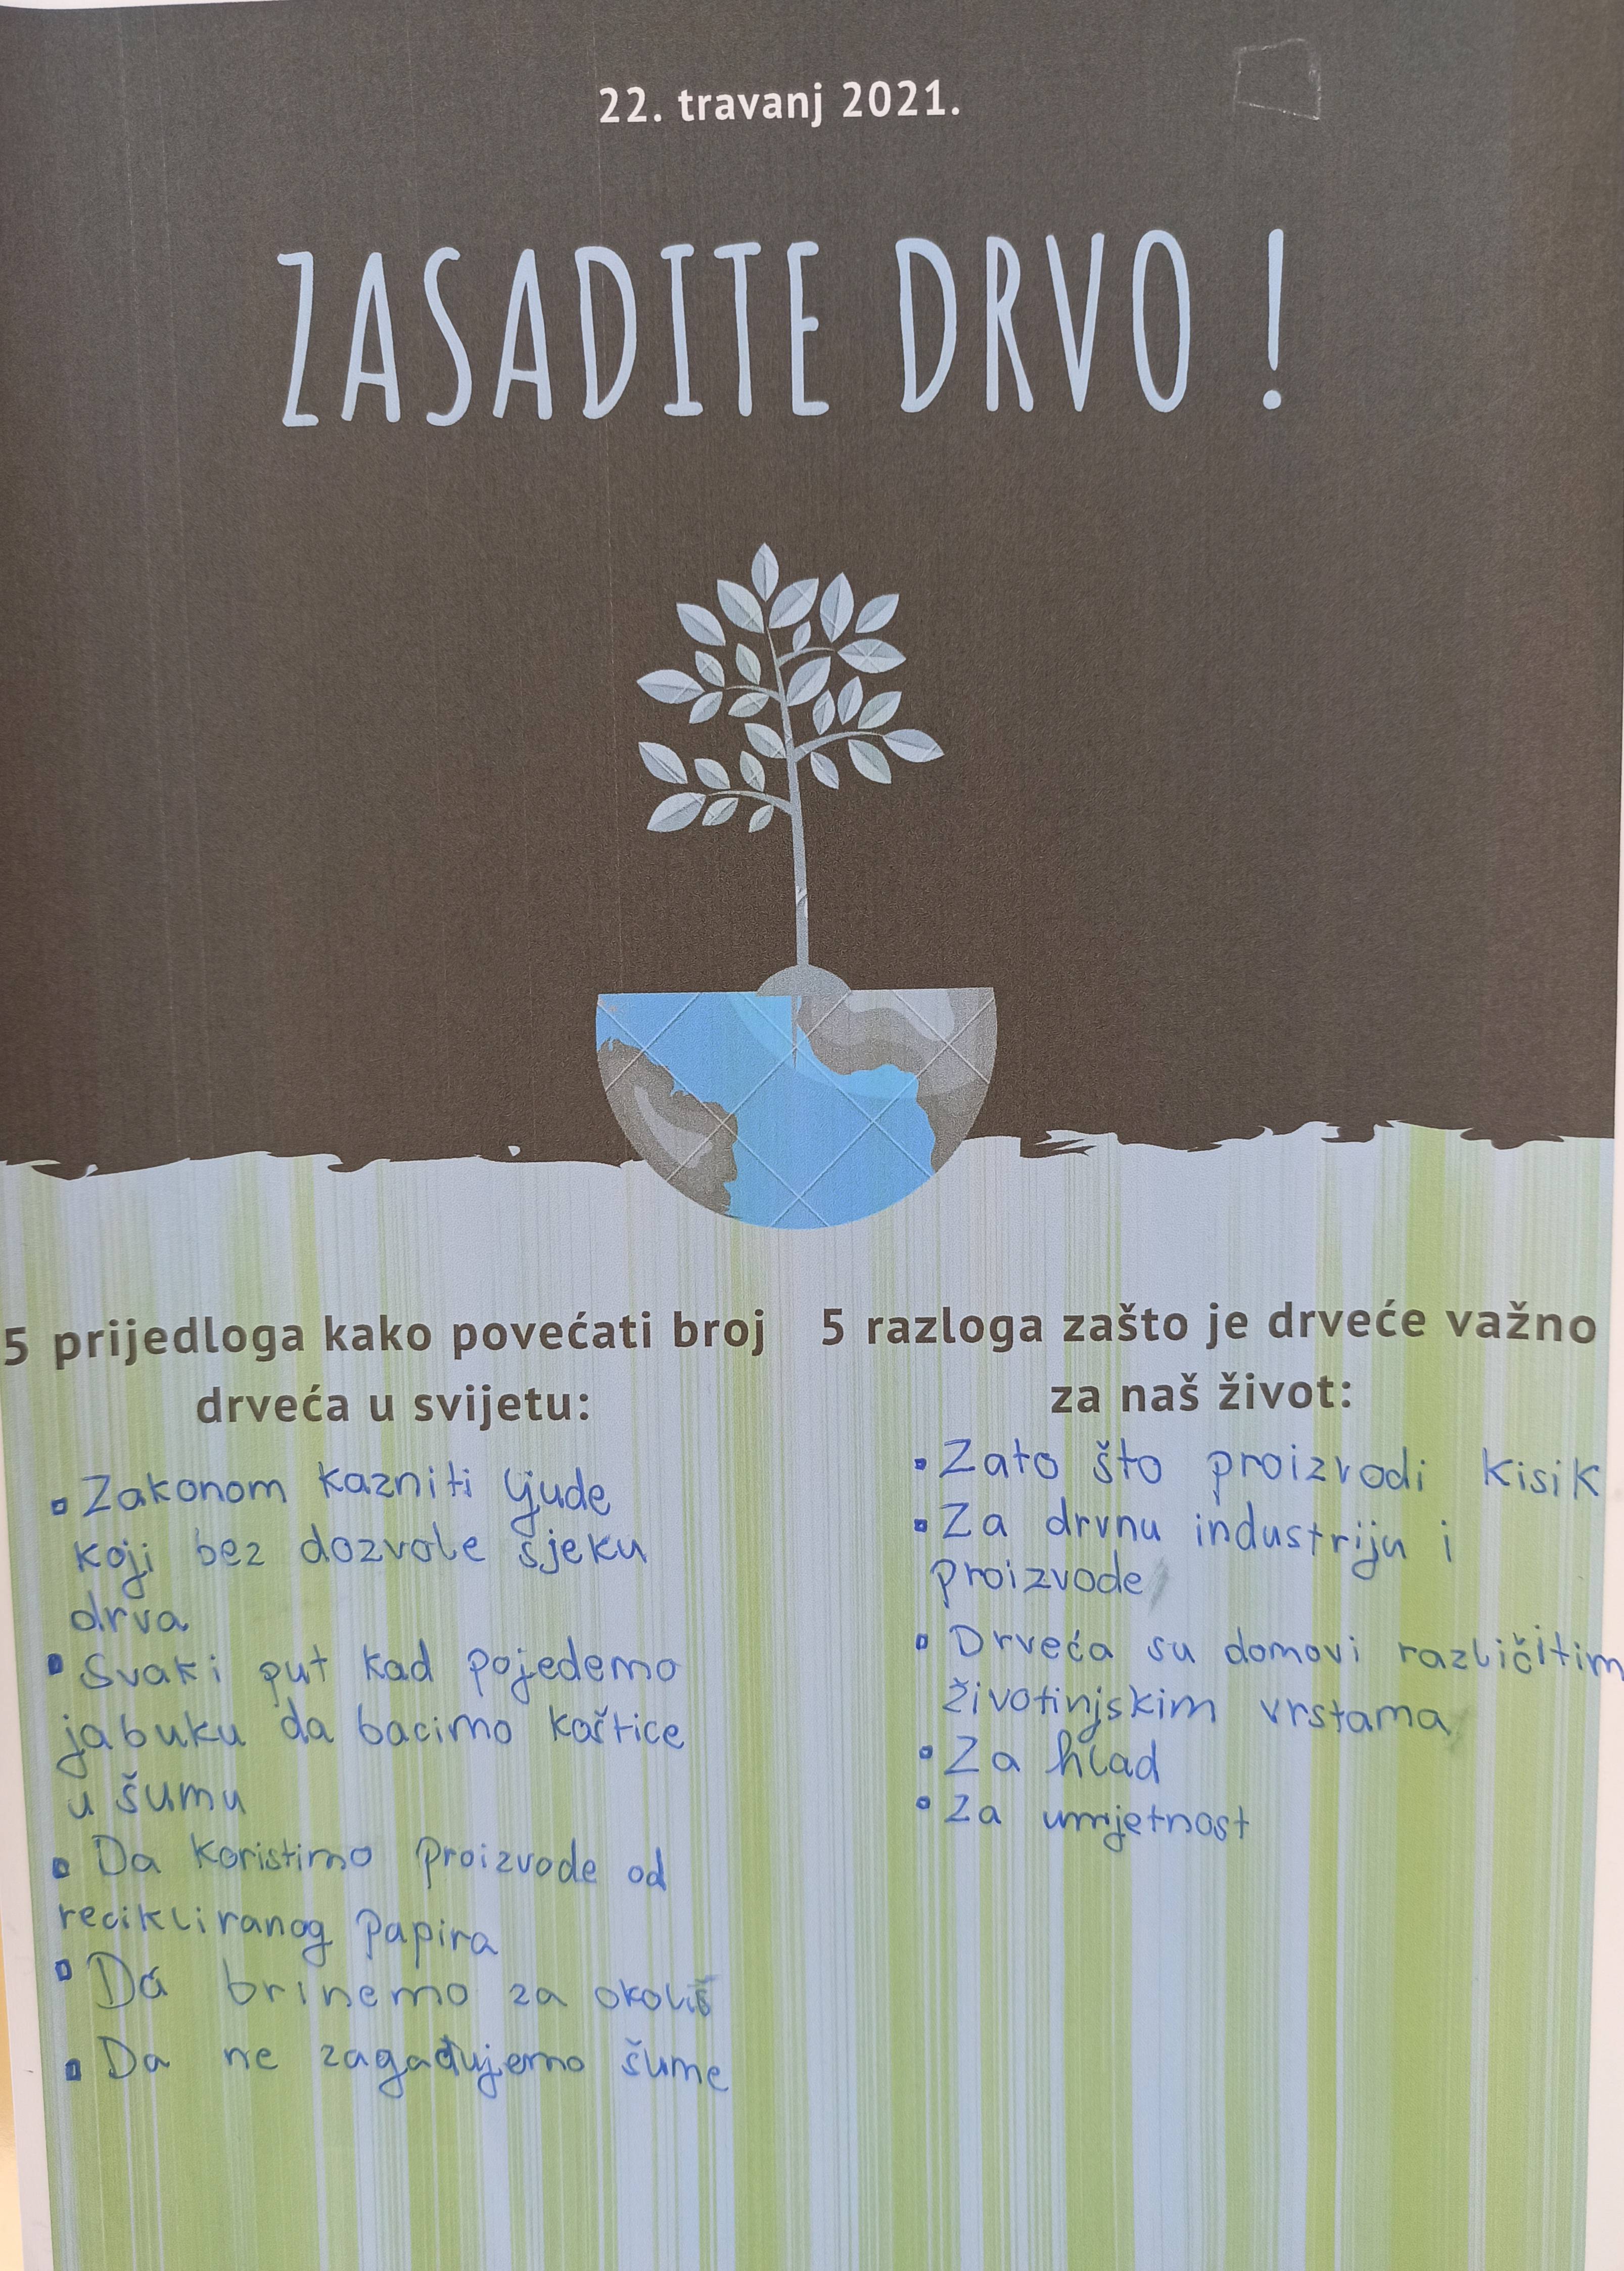 22. travanj 2021.
ZASADITE DRVO !
5 prijedloga kako povećati broj
drveća u svijetu:
▪ Zakonom kazniti ljude
koji bez dozvole sjeku
drva
▪ Svaki put kad pojedemo
jabuku da bacimo koštice
u šumu
▪ Da koristimo proizvode od
recikliranog papira
▪ Da brinemo za okoliš
▪ Da ne zagađujemo šume
5 razloga zašto je drveće važno
za naš život:
▪ Zato što proizvodi kisik
▪ Za drvnu industriju i
proizvode
▪ Drveća su domovi različitim
životinjskim vrstama
▪ Za hlad
▪ Za umjetnost